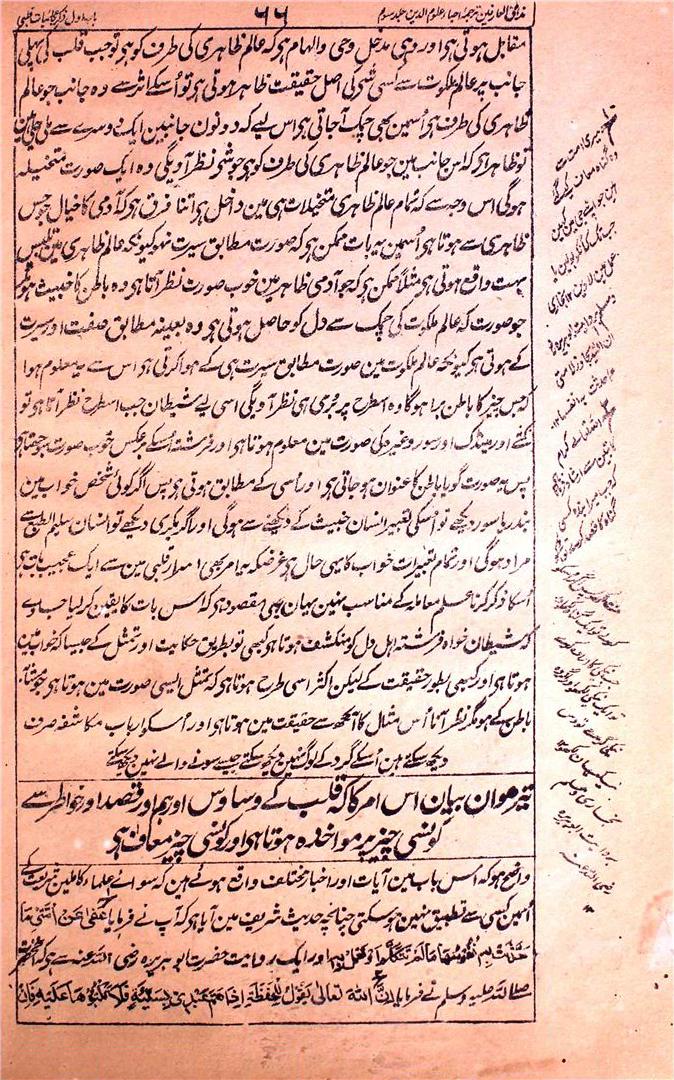 مذاق العارفین ترجمہ احیاء علوم الدین جلد سوم
۶۶
باب اول ذکر عجائبات قلبی
مقابل ہوتی ہی اور وہی مدخل وحی والہام ہی کہ عالم ظاہری کی طرف کو ہی تو جب قلب کی پہلی
جانب پر عالم ملکوت سے کسی شی کی اصل حقیقت ظاہر ہوتی ہی تو اُسکے اثر سے وہ جانب جو عالم
ظاہری کی طرف ہی اُسمین بھی چمک آجاتی ہی اس لیے کہ دونون جانبین ایک دوسرے سے ملی جلی ہین
تو ظاہر ہی کہ اس جانب مین جو عالم ظاہری کی طرف کو ہی جو شی نظر آویگی وہ ایک صورت متخیلہ
ہوگی اس وجہ سے کہ تمام عالم ظاہری متخیلات ہی مین داخل ہی اتنا فرق ہی کہ آدمی کا خیال جو حِس
ظاہری سے ہوتا ہی اُسمین یہ بات ممکن ہی کہ صورت مطابق سیرت نہو کیونکہ عالم ظاہری مین تلبیس
بہت واقع ہوتی ہی مثلاً ممکن ہی کہ جو آدمی ظاہر مین خوب صورت نظر آتا ہی وہ باطن کا خبیث ہو مگر
جو صورت کہ عالم ملکوت کی چمک سے دل کو حاصل ہوتی ہی وہ بعینہ مطابق صفت اور سیرت
کے ہوتی ہی کیونکہ عالم ملکوت مین صورت مطابق سیرت ہی کے ہوا کرتی ہی اس سے یہ معلوم ہوا
کہ جس چیز کا باطن برا ہوگا وہ اسطرح پر بُری ہی نظر آویگی اسی لیے شیطان جب اسطرح نظر آتا ہی تو
کتے اور مینڈک اور سور وغیرہ کی صورت مین معلوم ہوتا ہی اور فرشتہ اُسکے برعکس خوب صورت ہوتا ہی
پس یہ صورت گویا باطن کا عنوان ہوجاتی ہی اور اُسی کے مطابق ہوتی ہی پس اگر کوئی شخص خواب مین
بندر یا سور دیکھے تو اُسکی تعبیر انسان خبیث کے دیکھنے سے ہوگی اور اگر بکری دیکھے تو انسان سلیم الطبع سے
مراد ہوگی اور تمام تعبیرات خواب کا یہی حال ہی غرضکہ یہ امر بھی اسرار قلبی مین سے ایک عجیب بات ہی
اُسکا ذکر کرنا علم معاملہ کے مناسب نہین یہان یہی مقصود ہی کہ اس بات کا یقین کر لیا جاوے
کہ شیطان خواہ فرشتہ اہل دل کو منکشف ہوتا ہی کبھی تو بطریق حکایت اور تمثل کے جیسا کہ خواب مین
ہوتا ہی اور کبھی بطور حقیقت کے لیکن اکثر اسی طرح ہوتا ہی کہ تمثل ایسی صورت مین ہوتا ہی جو مشابہ
باطن کے ہو مگر نظر آنا اُس مثال کا آنکھ سے حقیقت مین ہوتا ہی اور اُسکو ارباب مکاشفہ صرف
دیکھ سکتے ہین اُسکے گرد کے لوگ نہین دیکھ سکتے جیسے سونے والے نہین دیکھ سکتے
تیرھوان بیان اس امر کا کہ قلب کے وساوس اور ہم اور قصد اور خواطر سے
کونسی چیز پر مواخذہ ہوتا ہی اور کونسی چیز معاف ہی
واضح ہو کہ اس باب مین آیات اور اخبار مختلف واقع ہوئے ہین کہ سوائے علماء کاملین شریعت کے
اُسمین کسی سے تطبیق نہین ہوسکتی چنانچہ حدیث شریف مین آیا ہی کہ آپ نے فرمایا عُفِیَ عَنْ اُمَّتِیْ مَا
حَدَّثَتْ بِہٖ نُفُوْسُہَا مَا لَمْ تَتَکَلَّمْ اَوْ تَعْمَلْ بِہٖ اور ایک روایت حضرت ابو ہریرہ رضی اللہ عنہ سے ہی کہ آنحضرت
صلی اللہ علیہ وسلم نے فرمایا اِنَّ اللہَ تَعَالٰی یَقُوْلُ لِلْحَفَظَۃِ اِذَا ہَمَّ عَبْدِیْ بِسَیِّئَۃٍ فَلَا تَکْتُبُوْہَا عَلَیْہِ فَاِنْ
میری امت سے
رضی اللہ عنہ
۱۲